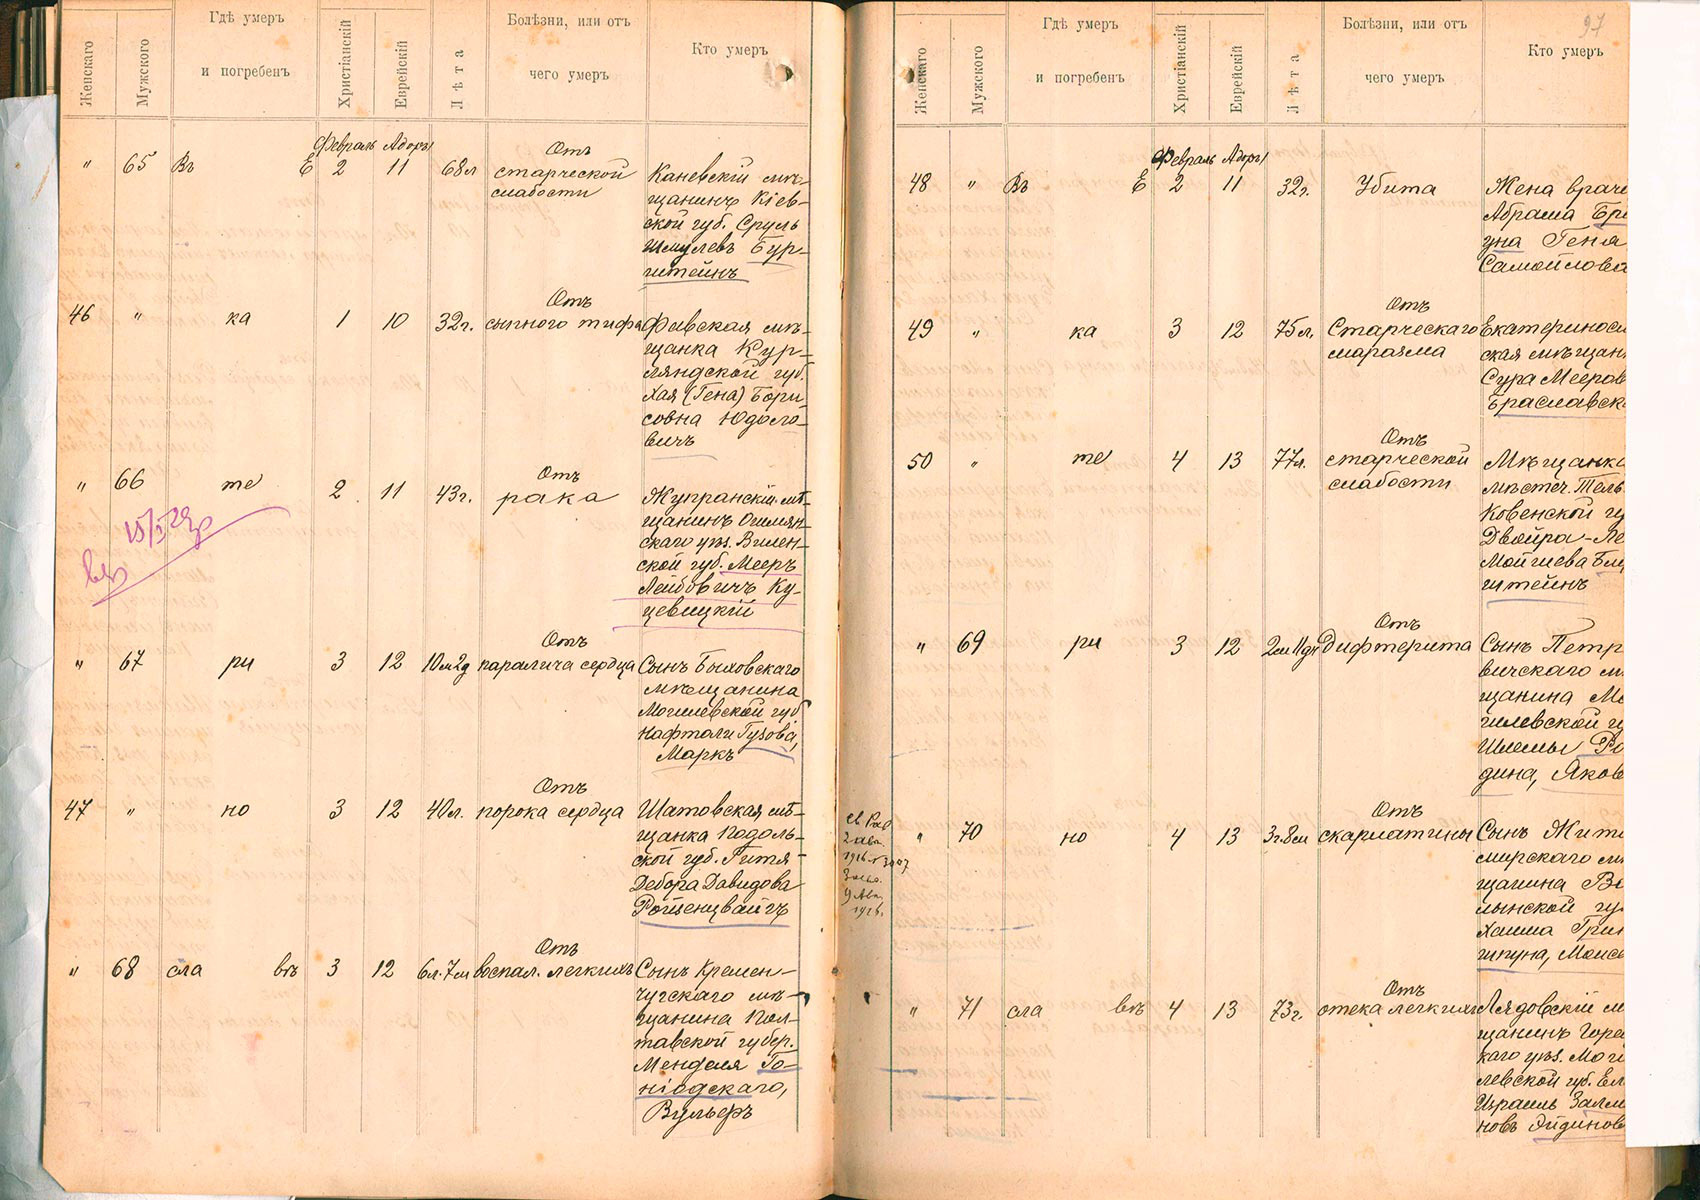 Женскаго
Мужского
Гдѣ умеръ
и погребенъ
Христіанскій
Еврейскій
Лѣта
Болѣзни, или отъ
чего умеръ
Кто умеръ
Февраль Адоръ
" 65 Въ Е 2 11 68л
Отъ
старческой
слабости
Каневскій мѣ-
щанинъ Кіев-
ской губ. Сруль
Шмулевъ Бур-
штейнъ
46 " ка 1 10 32г.
Отъ
сыпного тифа
мѣ-
щанка Кур-
ляндской губ.
Хая (Гена) Бори-
совна Юдело-
вичъ
" 66 те 2 11 43г.
Отъ
рака
Жупранскій мѣ-
щанинъ Ошмян-
скаго уѣз. Вилен-
ской губ. Мееръ
Лейбовичъ Ку-
цевицкій
" 67 ри 3 12 10м2д
Отъ
паралича сердца
Сынъ Быховскаго
мѣщанина
Могилевской губ
Нафтали Гузова,
Маркъ
47 " но 3 12 40л.
Отъ
порока сердца
Шатовская мѣ-
щанка Подоль-
ской губ. Гитля-
Дебора Давидова
Ройзенцвайгъ
" 68 сла вѣ 3 12 6л.7м
Отъ
воспал. легкихъ
Сынъ Кремен-
чугскаго мѣ-
щанина Пол-
тавской губер.
Менделя Го-
ніодскаго,
Вульфъ
97
Женскаго
Мужского
Гдѣ умеръ
и погребенъ
Христіанскій
Еврейскій
Лѣта
Болѣзни, или отъ
чего умеръ
Кто умеръ
Февраль Адоръ
48 " Въ Е 2 11 32г.
Убита
Жена враче
Абрама Бр
уна Геня
Самойлова
49 " ка 3 12 75л.
Отъ
Старческаго
маразма
Екатеринос
ская мѣщан
Сура Мееров
Браславск
50 " те 4 13 77л.
Отъ
старческой
слабости
Мѣщанка
мѣстеч. Тель
Ковенской гу
Двойра-Ле
Мойшева Блу
штейнъ
" 69 ри 3 12 2м11дн
Отъ
Дифтерита
Сынъ Петр
вичскаго м
щанина Мо
гилевской гу
Шлемы Ро
дина, Яков
" 70 но 4 13 3г.8м
Отъ
скарлатины
Сынъ Жито
мирскаго мѣ
щанина Во
лынской гу
Хаима Грин
шпуна, Моисе
2 авг.
1916
9 Авг.
1916.
" 71 сла вѣ 4 13 73г.
Отъ
отека легкихъ
Лядовскій м
щанинъ Горец
каго уѣз. Моги
левской губ. Ел
Израиль Залма
новъ Эйдинов